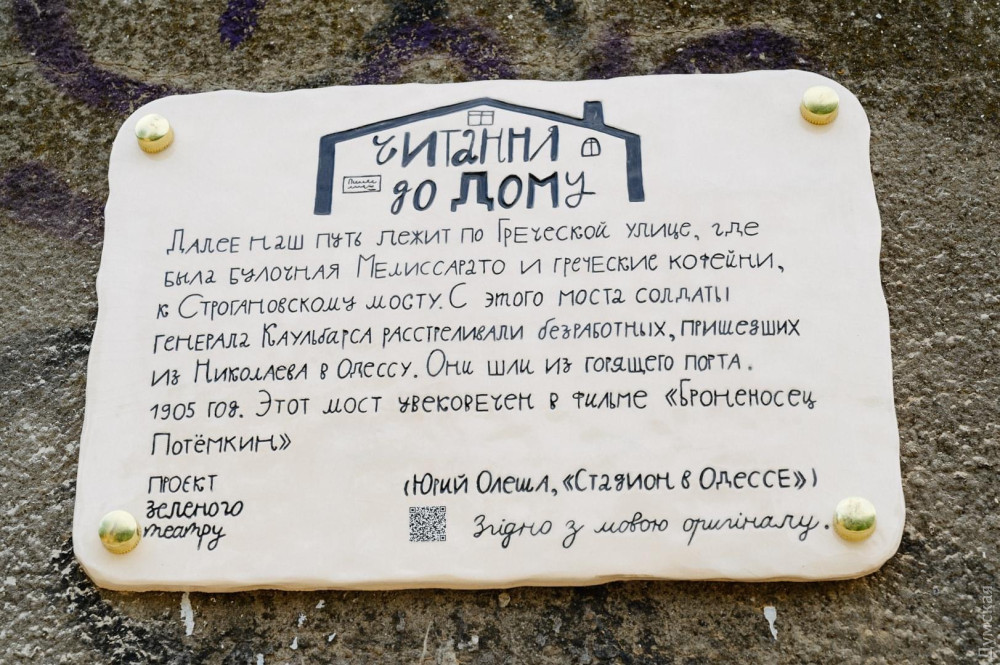 читання
до дому
Далее наш путь лежит по Греческой улице, где
была булочная Мелиссарато и греческие кофейни,
к Строгановскому мосту. С этого моста солдаты
генерала Каульбарса расстреливали безработных, пришедших
из Николаева в Одессу. Они шли из горящего порта.
1905 год. Этот мост увековечен в фильме «Броненосец
Потёмкин»
проєкт
зеленого
театру
(Юрий Олеша, «Стадион в Одессе»)
Згідно з мовою оригіналу.
Думская